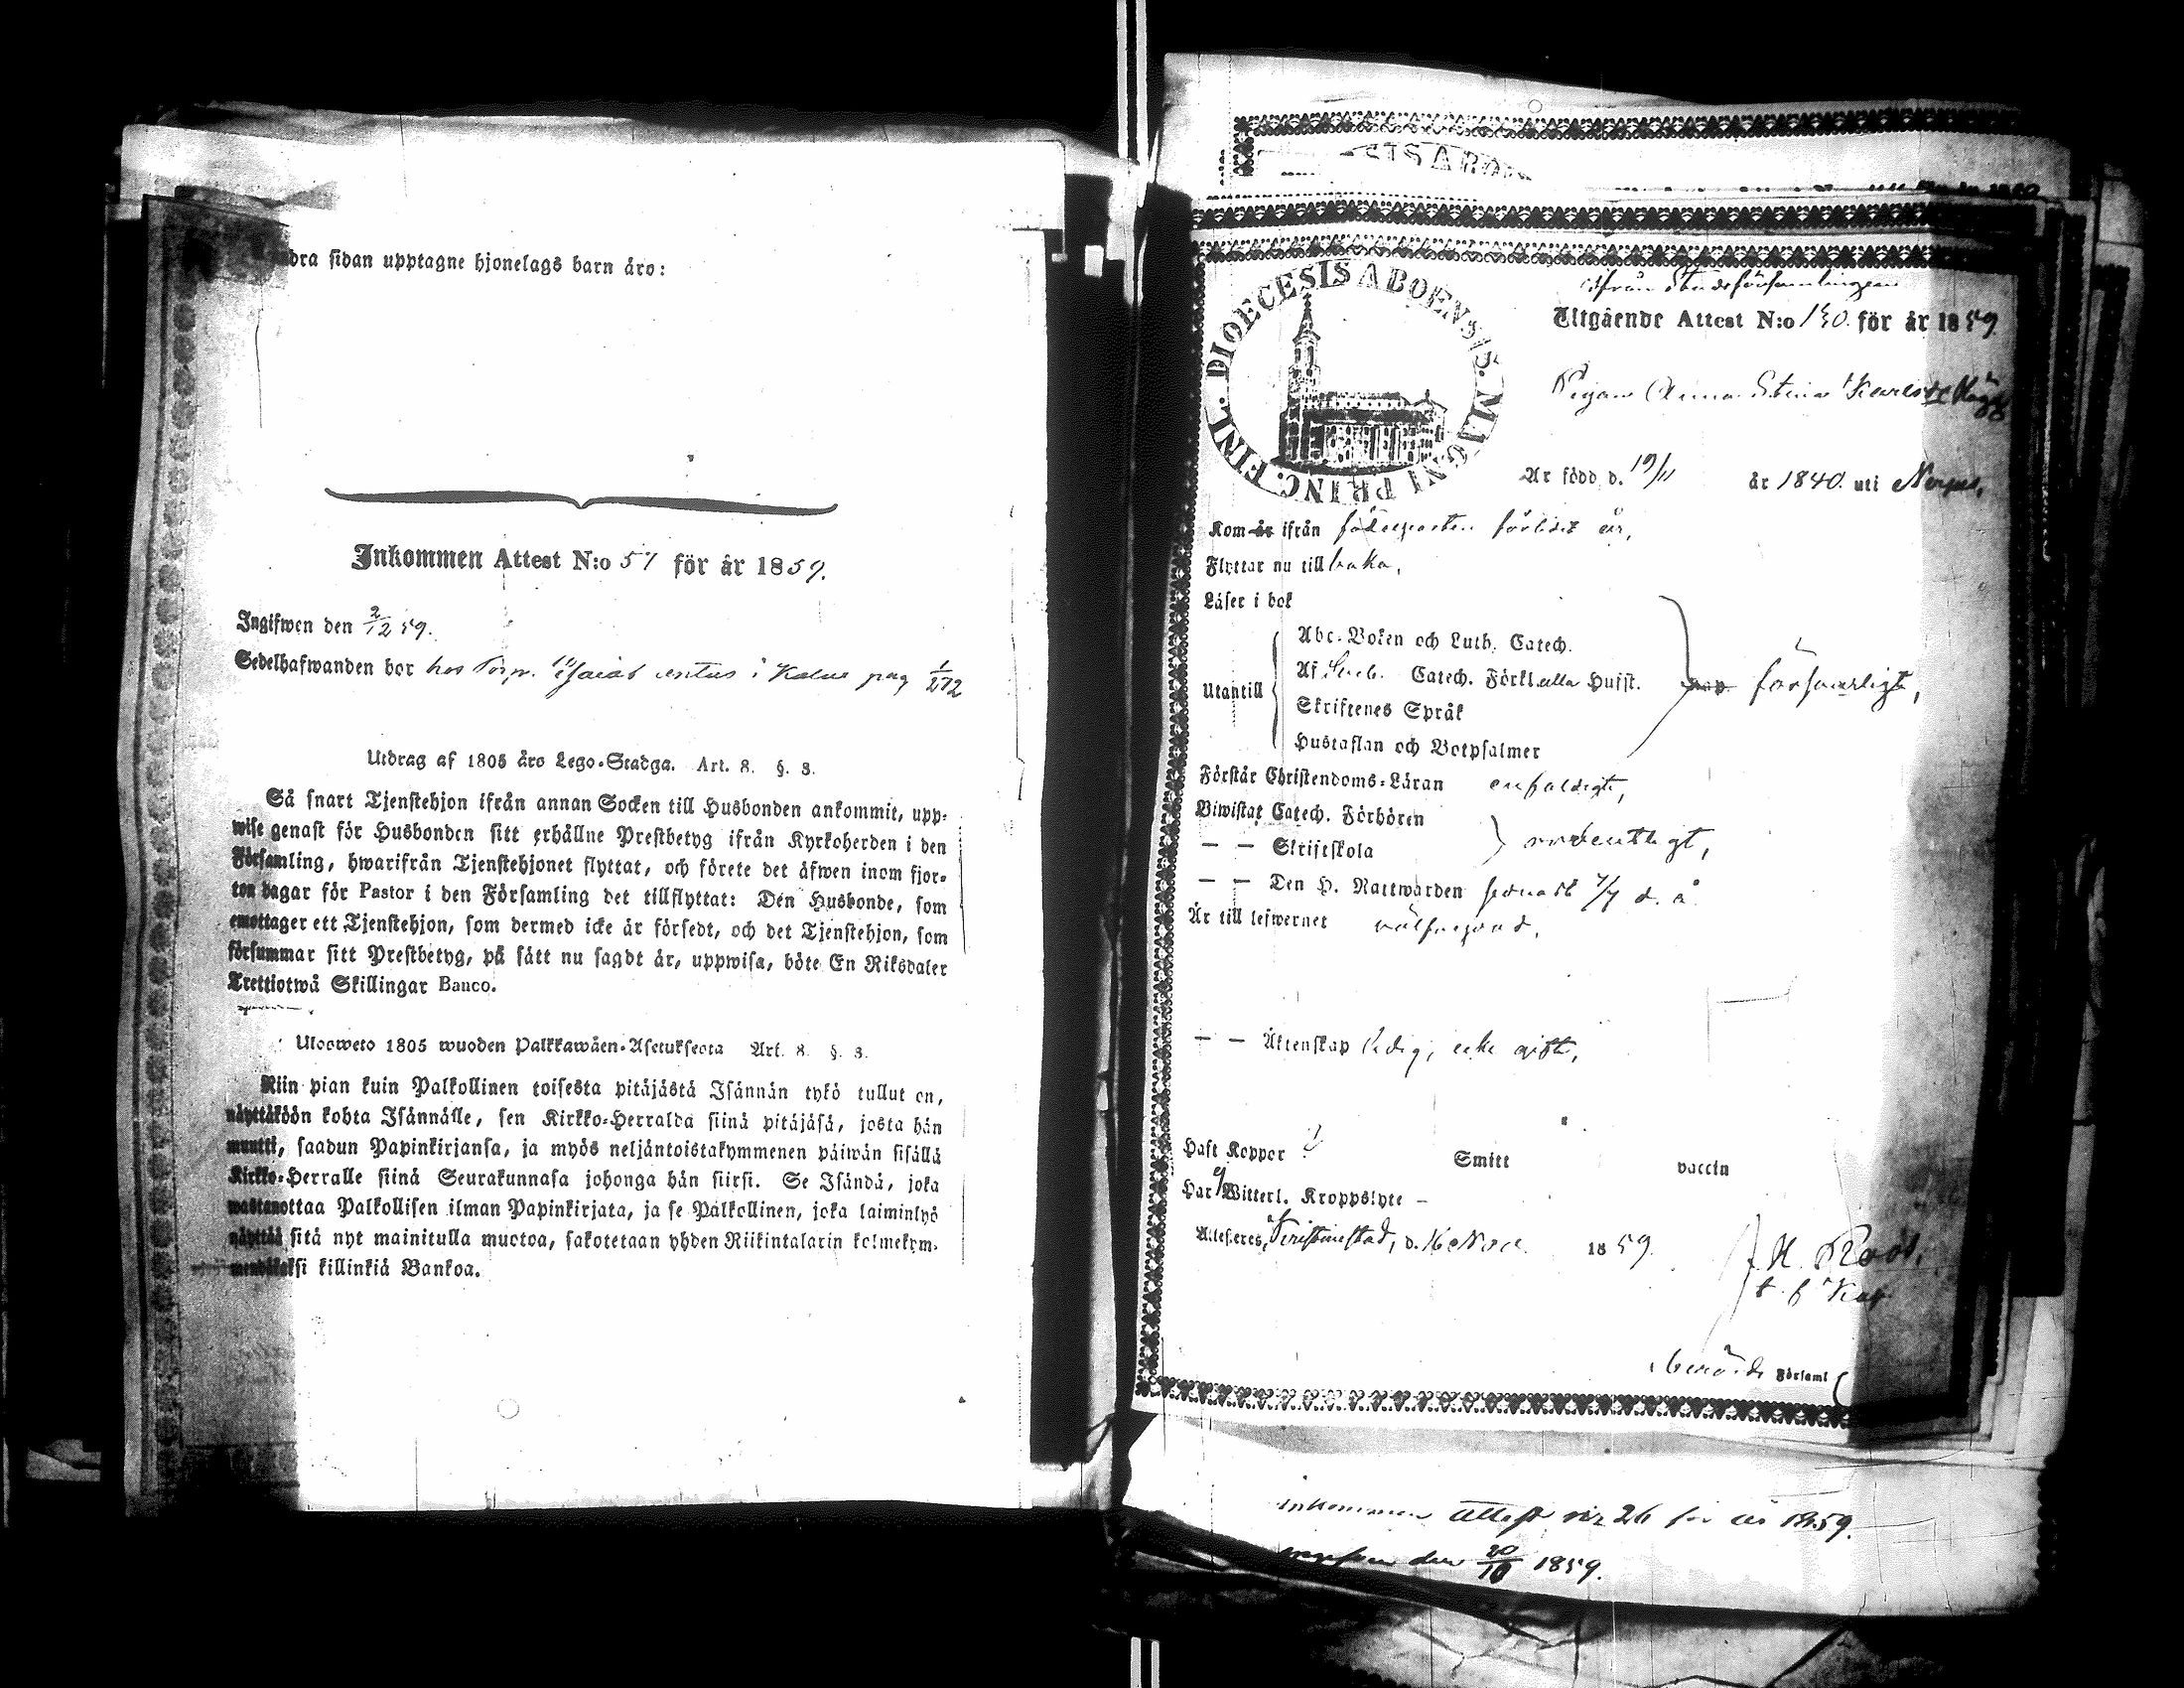 dra sidan upptagne hjonelags barn äro:
Inkommen Attest N:o 57 för år 1859.
Ingifwen den 2/12 59.
Sedelhafwanden bor hos Torp. Esaias i Kalax pag 1/272
Utdrag af 1805 åro Lego-Stadga. Art. 8. §. 3.
Så snart Tjenstehjon ifrån annan Socken till Husbonden ankommit, upp-
wise genast för Husbonden sitt erhållne Prestbetyg ifrån Kyrkoherden i den
Församling, hwarifrån Tjenstehjonet flyttat, och förete det äfwen inom fjor-
ton dagar för Pastor i den Församling det tillflyttat: Den Husbonde, som
emottager ett Tjenstehjon, som dermed icke är försedt, och det Tjenstehjon, som
försummar sitt Prestbetyg, på sätt nu sagdt är, uppwisa, böte En Riksdaler
Trettiotwå Skillingar Banco.
Ulosweto 1805 wuoden Palkkawäen-Asetuksesta Art. 8. §. 3.
Niin pian kuin Palkollinen toisesta pitäjästä Isännän tykö tullut on,
näyttäköön kohta Isännälle, sen Kirkko-Herralda siinä pitäjäsä, josta hän
muutti, saadun Papinkirjansa, ja myös neljäntoistakymmenen päiwän sisällä
Kirkko-Herralle siinä Seurakunnasa johonga hän siirsi. Se Isändä, joka
wastanottaa Palkollisen ilman Papinkirjata, ja se Palkollinen, joka laiminlyö
näyttää sitä nyt mainitulla muotoa, sakotetaan yhden Riikintalarin kolmekym-
mendäkaksi killinkiä Bankoa.
SIS ABOEN
DIOECESIS ABOENSIS. MAGNI PRINC. FINL.
Ifrån Stadsförsamlingen
Utgående Attest N:o 150. för år 1859
Pigan Anna Stina Karlsdr Hägg
Är född d. 19/11 år 1840. uti Nerpes,
Kom år ifrån födelseorten förlidet år,
Flyttar nu tillbaka,
Läser i bok
Utantill
Abc-Boken och Luth. Catech.
Af Sveb. Catech. Förkl. ella Hufst.
Skriftenes Språk
Hustaflan och Botpsalmer
försvarligt,
Förstår Christendoms-Läran enfaldigt,
Biwistat Catech. Förhören
— — Skriftskola
ordentligt,
— — Den H. Nattwarden senast d. å.
Är till lefwernet välfrejdad,
— — Äktenskap ledig, icke gift,
Haft Koppor
Smitt
vaccin
Har ej Witterl. Kroppslyte —
Attesteres, Kristinestad, d. 16 Nov. 1859.
J. H. Roos,
t. f. Kap
i berörde Församl
inkommen Attest nr 26 för år 1859.
ingifwen den 20/10 1859.